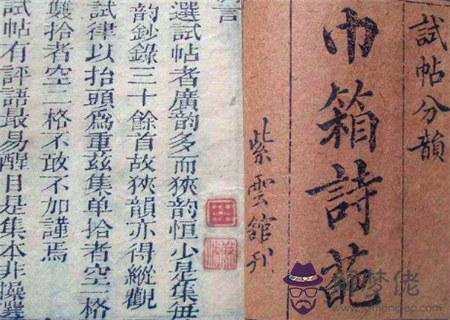 試帖分韻
巾箱詩葩
紫雲館刊
言
選試帖者廣韵多而狹韵恒少是集每
韵鈔錄三十餘首故狹韵亦得縱觀
試律以抬頭爲重茲集单抬者空一格
雙抬者空二格不敢不加謹焉
試帖有評語最易醒目是集本非操